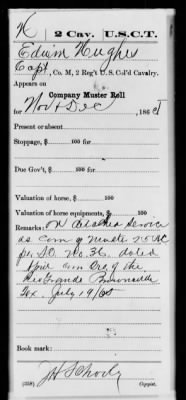 H | 2 Cav. | U.S.C.T.
Edwin Hughes
Capt, Co. M, 2 Reg't U. S. Col'd Cavalry.
Appears on
Company Muster Roll
for Nov & Dec, 1865
Present or absent
Stoppage, $ 100 for
Due Gov't, $ 100 for
Valuation of horse, $ 100
Valuation of horse equipments, $ 100
Remarks: On detached service
as com of 25 AC
per SO. No. 36. dated
of the
Rio Grande Brownsville
Tex. July 19/65
Book mark:
(358) Copyist.